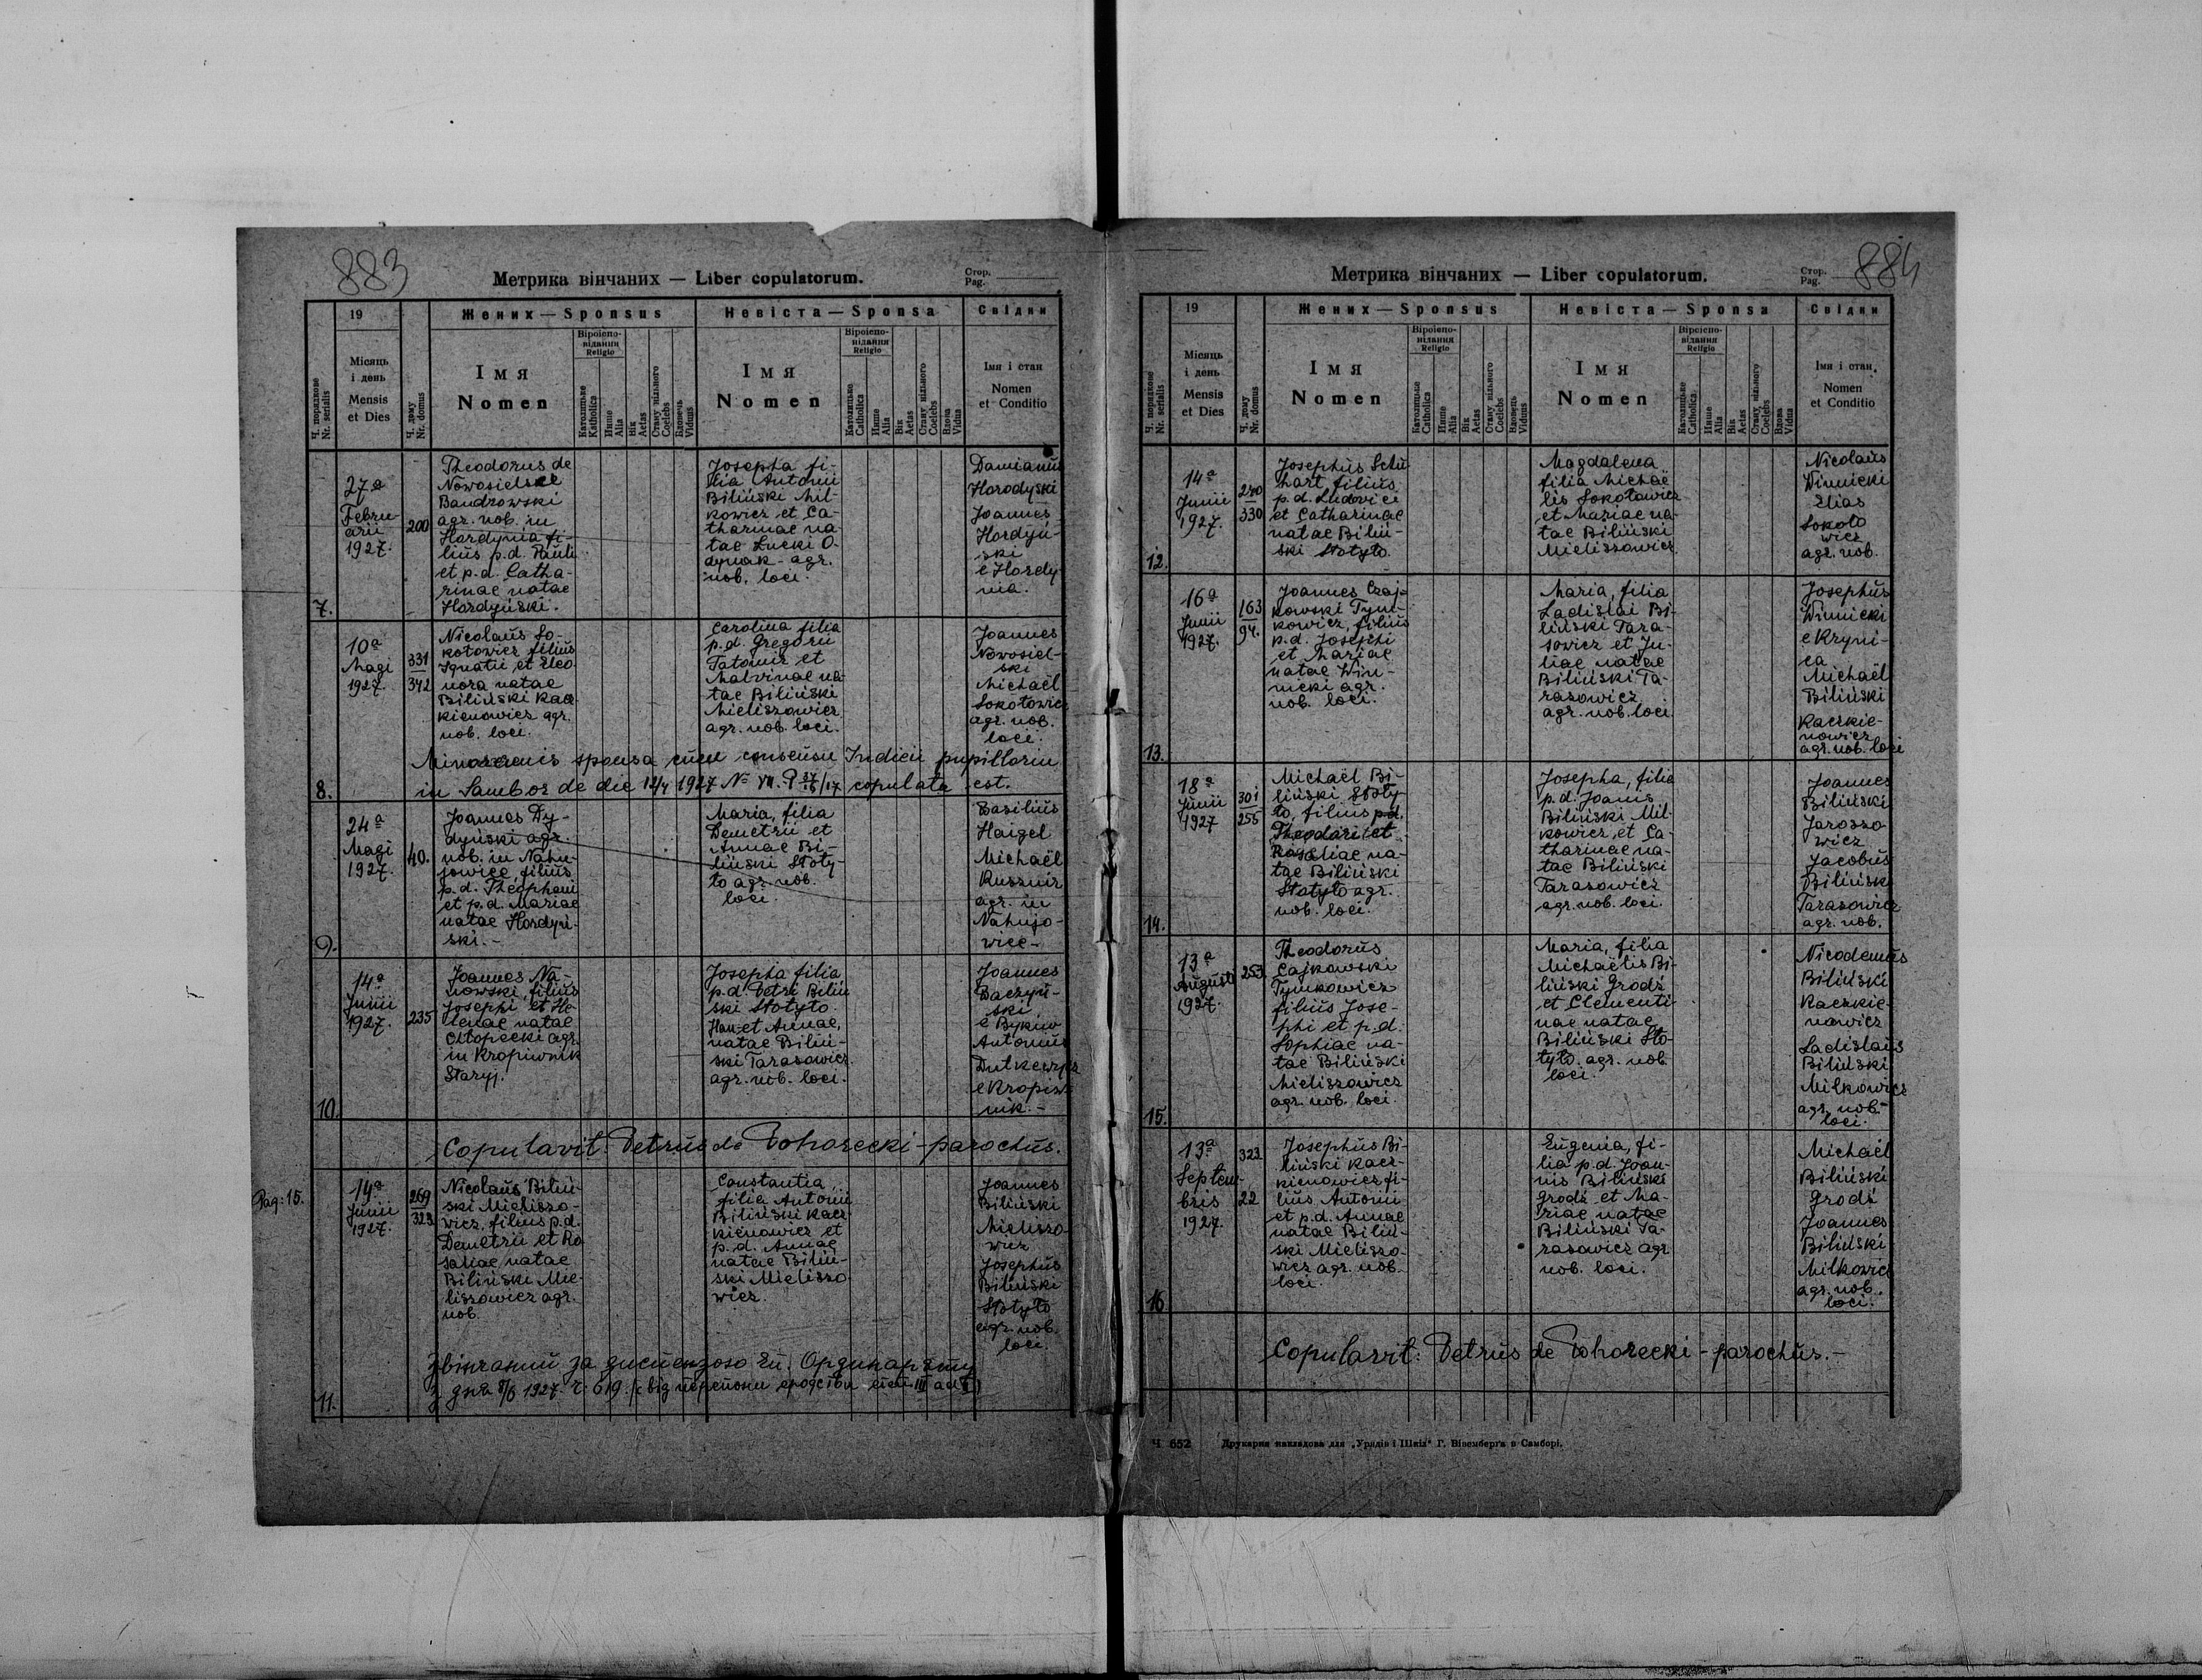 883
Метрика вінчаних — Liber copulatorum.
Стор.
Pag.
19
Жених — Sponsus
Невіста — Sponsa
Свідки
Ч. порядкове
Nr. serialis
Місяць
і день
Mensis
et Dies
Ч. дому
Nr. domus
Імя
Nomen
Віроісповідання
Religio
Католицьке
Katholica
Инше
Alia
Вік
Aetas
Стану вільного
Coelebs
Вдовець
Viduus
Імя
Nomen
Віроісповідання
Religio
Католицьке
Catholica
Инше
Alia
Вік
Aetas
Стану вільного
Coelebs
Вдова
Vidua
Імя і стан
Nomen
et Conditio
7.
27a
Febru-
arii
1927.
200
Theodorus de
Nowosielski
Bandrowski
agr. nob. in
Hordynia fi-
lius p.d. Pauli
et p.d. Catha-
rinae natae
Hordyński.
Josepha fi-
lia Antonii
Biliński Mil-
kowicz et Ca-
tharinae na-
tae Łucki O-
dynak - agr.
nob. loci.
Damianus
Horodyski
Joannes
Hordyń-
ski
e Hordy-
nia.
8.
10a
Maji
1927.
331
342
Nicolaus So-
kołowicz filius
Ignatii et Eleo
nora natae
Biliński Kacz
kienowicz agr.
nob. loci.
Carolina filia
p.d. Gregorii
Tatomir et
Malvinae na-
tae Biliński
Mieliszowicz
agr. nob. loci.
Joannes
Nowosiel-
ski
Michaël
Sokołowicz
agr. nob.
loci.
Minorennis sponsa cum consensu Judicii pupillorum
in Sambor de die 12/4 1927 № VII. copulata est.
9.
24a
Maji
1927.
40.
Joannes Dy-
dyński agr.
nob. in Nahu-
jowice, filius
p.d. Theophani
et p.d. Mariae
natae Hordyń-
ski.-
Maria, filia
Demetrii et
Annae Bi-
liński Stoty-
to agr. nob.
loci.
Basilius
Haigel
Michaël
Kusznir
agr. in
Nahujo-
wice-
10.
14a
Junii
1927.
235
Joannes Na-
nowski, filius
Josephi et He-
lenae natae
Chłopecki agr.
in Kropiwnik
Staryj.
Josepha filia
p.d. Petri Biliń
ski Stotyto
Han et Annae,
natae Biliń-
ski Tarasowicz
agr. nob. loci.
Joannes
Baczyń-
ski
e Bykiw
Antonius
e Kropiw
nik.-
Copulavit: Petrus de Pohorecki - parochus.
Pag: 15.
11.
14a
Junii
1927.
269
323
Nicolaus Biliń-
ski Mieliszo-
wicz, filius p.d.
Demetrii et Ro
saliae natae
Biliński Mie-
liszowicz agr.
nob.
Constantia,
filia Antonii
Biliński Kacz
kienowicz et
p.d. Annae
natae Biliń-
ski Mieliszo
wicz.
Joannes
Biliński
Mieliszo-
wicz
Josephus
Biliński
Stotyto
agr. nob.
loci.
Звінчаний за диспензою Еп. Ординаріяту
з дня 8/6 1927. ч. 619.
884
Метрика вінчаних — Liber copulatorum.
Стор.
Pag.
19
Жених — Sponsus
Невіста — Sponsa
Свідки
Ч. порядкове
Nr. serialis
Місяць
і день
Mensis
et Dies
Ч. дому
Nr. domus
Імя
Nomen
Віроісповідання
Religio
Католицьке
Catholica
Инше
Alia
Вік
Aetas
Стану вільного
Coelebs
Вдовець
Viduus
Імя
Nomen
Віроісповідання
Religio
Католицьке
Catholica
Инше
Alia
Вік
Aetas
Стану вільного
Coelebs
Вдова
Vidua
Імя і стан
Nomen
et Conditio
12.
14a
Junii
1927.
240
330
Josephus Schu
hart, filius
p.d. Ludovici
et Catharinae
natae Biliń-
ski Stotyto.
Magdalena
filia Michaë
lis Sokołowicz
et Mariae na-
tae Biliński
Mieliszowicz
Nicolaus
Winnicki
Elias
Sokoło
wicz
agr. nob.
13.
16a
Junii
1927.
163
94.
Joannes Czaj-
kowski Tym-
kowicz, filius
p.d. Josephi
et Mariae
natae Win-
nicki agr.
nob. loci.
Maria, filia
Ladislai Bi-
liński Tara-
sowicz et Ju-
liae natae
Biliński Ta-
rasowicz
agr. nob. loci.
Josephus
Winnicki
e Kryni-
ca
Michaël
Biliński
Kaczkie-
nowicz
agr. nob. loci
14.
18a
Junii
1927
301
255
Michaël Bi-
liński Stoty-
to, filius p.d.
Theodori et
Rosaliae na-
tae Biliński
Stotyto agr.
nob. loci.
Josepha, filia
p.d. Joanis
Biliński Mil-
kowicz, et Ca-
tharinae na-
tae Biliński
Tarasowicz
agr. nob. loci.
Joannes
Biliński
Jaroszo
wicz
Jacobus
Biliński
Tarasowicz
agr. nob.
15.
13a
Augusti
1927.
253
Theodorus
Cajkowski
Tymkowicz
filius Jose-
phi et p.d.
Sophiae na-
tae Biliński
Mieliszowicz
agr. nob. loci.
Maria, filia
Michaëlis Bi-
liński Grodź
et Clementi-
nae natae
Biliński Sto-
tyto, agr. nob
loci.
Nicodemus
Biliński
Kaczkie-
nowicz
Ladislaus
Biliński
Milkowicz
agr. nob-
loci.
16
13a
Septem-
bris
1927.
323
22
Josephus Bi-
liński Kacz-
kienowicz fi-
lius Antonii
et p.d. Annae
natae Biliń-
ski Mieliszo-
wicz agr. nob.
loci.
Eugenia, fi-
lia p.d. Joan-
nis Biliński
Grodź et Ma-
riae natae
Biliński Ta-
rasowicz agr
nob. loci.
Michaël
Biliński
Grodź
Joannes
Biliński
Milkowicz
agr. nob.
loci.
Copulavit: Petrus de Pohorecki - parochus.-
Ч. 652 Друкарня накладова для „Урядів і Шкіл" Г. Вівемберга в Самборі.